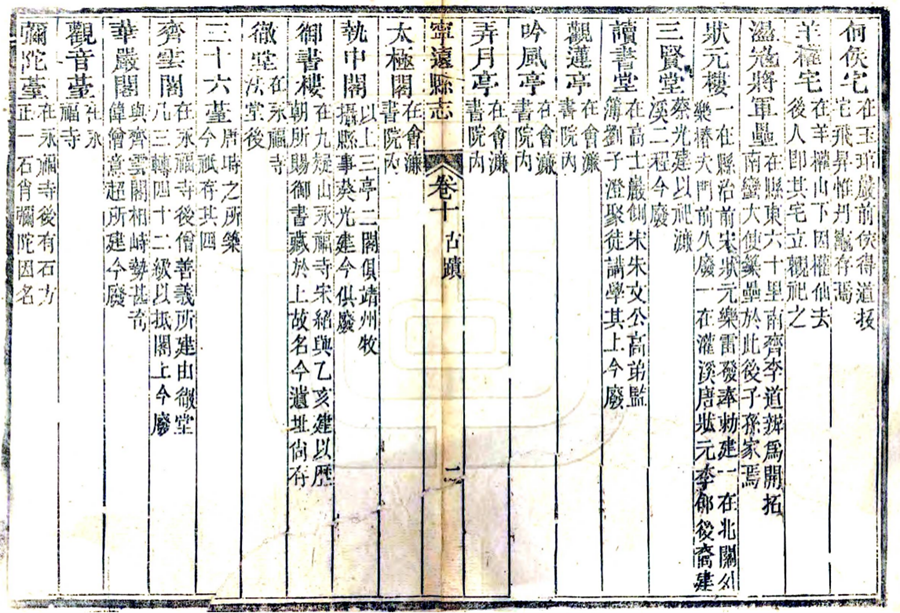 何侯宅 在玉琯巖前侯得道拔
宅飛昇惟丹竈存焉
羊權宅 在羊權山下因權仙去
後人即其宅立觀祀之
盪寇將軍壘 在縣東六十里南齊李道辨為開拓
南蠻大使築壘於此後子孫家焉
狀元樓 一在縣治前宋狀元樂雷發奉勅建一在北關外
樂椿夫門前久廢一在灌溪唐狀元李郃後裔建
三賢堂 蔡光建以祀濂
溪二程今廢
讀書堂 在高士巖側宋朱文公高弟監
簿劉子澄聚徒講學其上今廢
觀蓮亭 在會濂
書院內
吟風亭 在會濂
書院內
弄月亭 在會濂
書院內
寧遠縣志 卷十 古蹟 二
太極閣 在會濂
書院內
執中閣 以上三亭二閣俱靖州牧
攝縣事蔡光建今俱廢
御書樓 在九疑山永福寺宋紹興乙亥建以歷
朝所賜御書藏於上故名今遺址尚存
徹堂 在永福寺
法堂後
三十六臺 唐時之所築
今祇有其四
齊雲閣 在永福寺後僧善義所建由徹堂
凡三轉四十二級以抵閣上今廢
華嚴閣 與齊雲閣相峙勢甚高
偉僧意超所建今廢
觀音臺 在永
福寺
彌陀臺 在永福寺後有石方
正一石肖彌陀因名